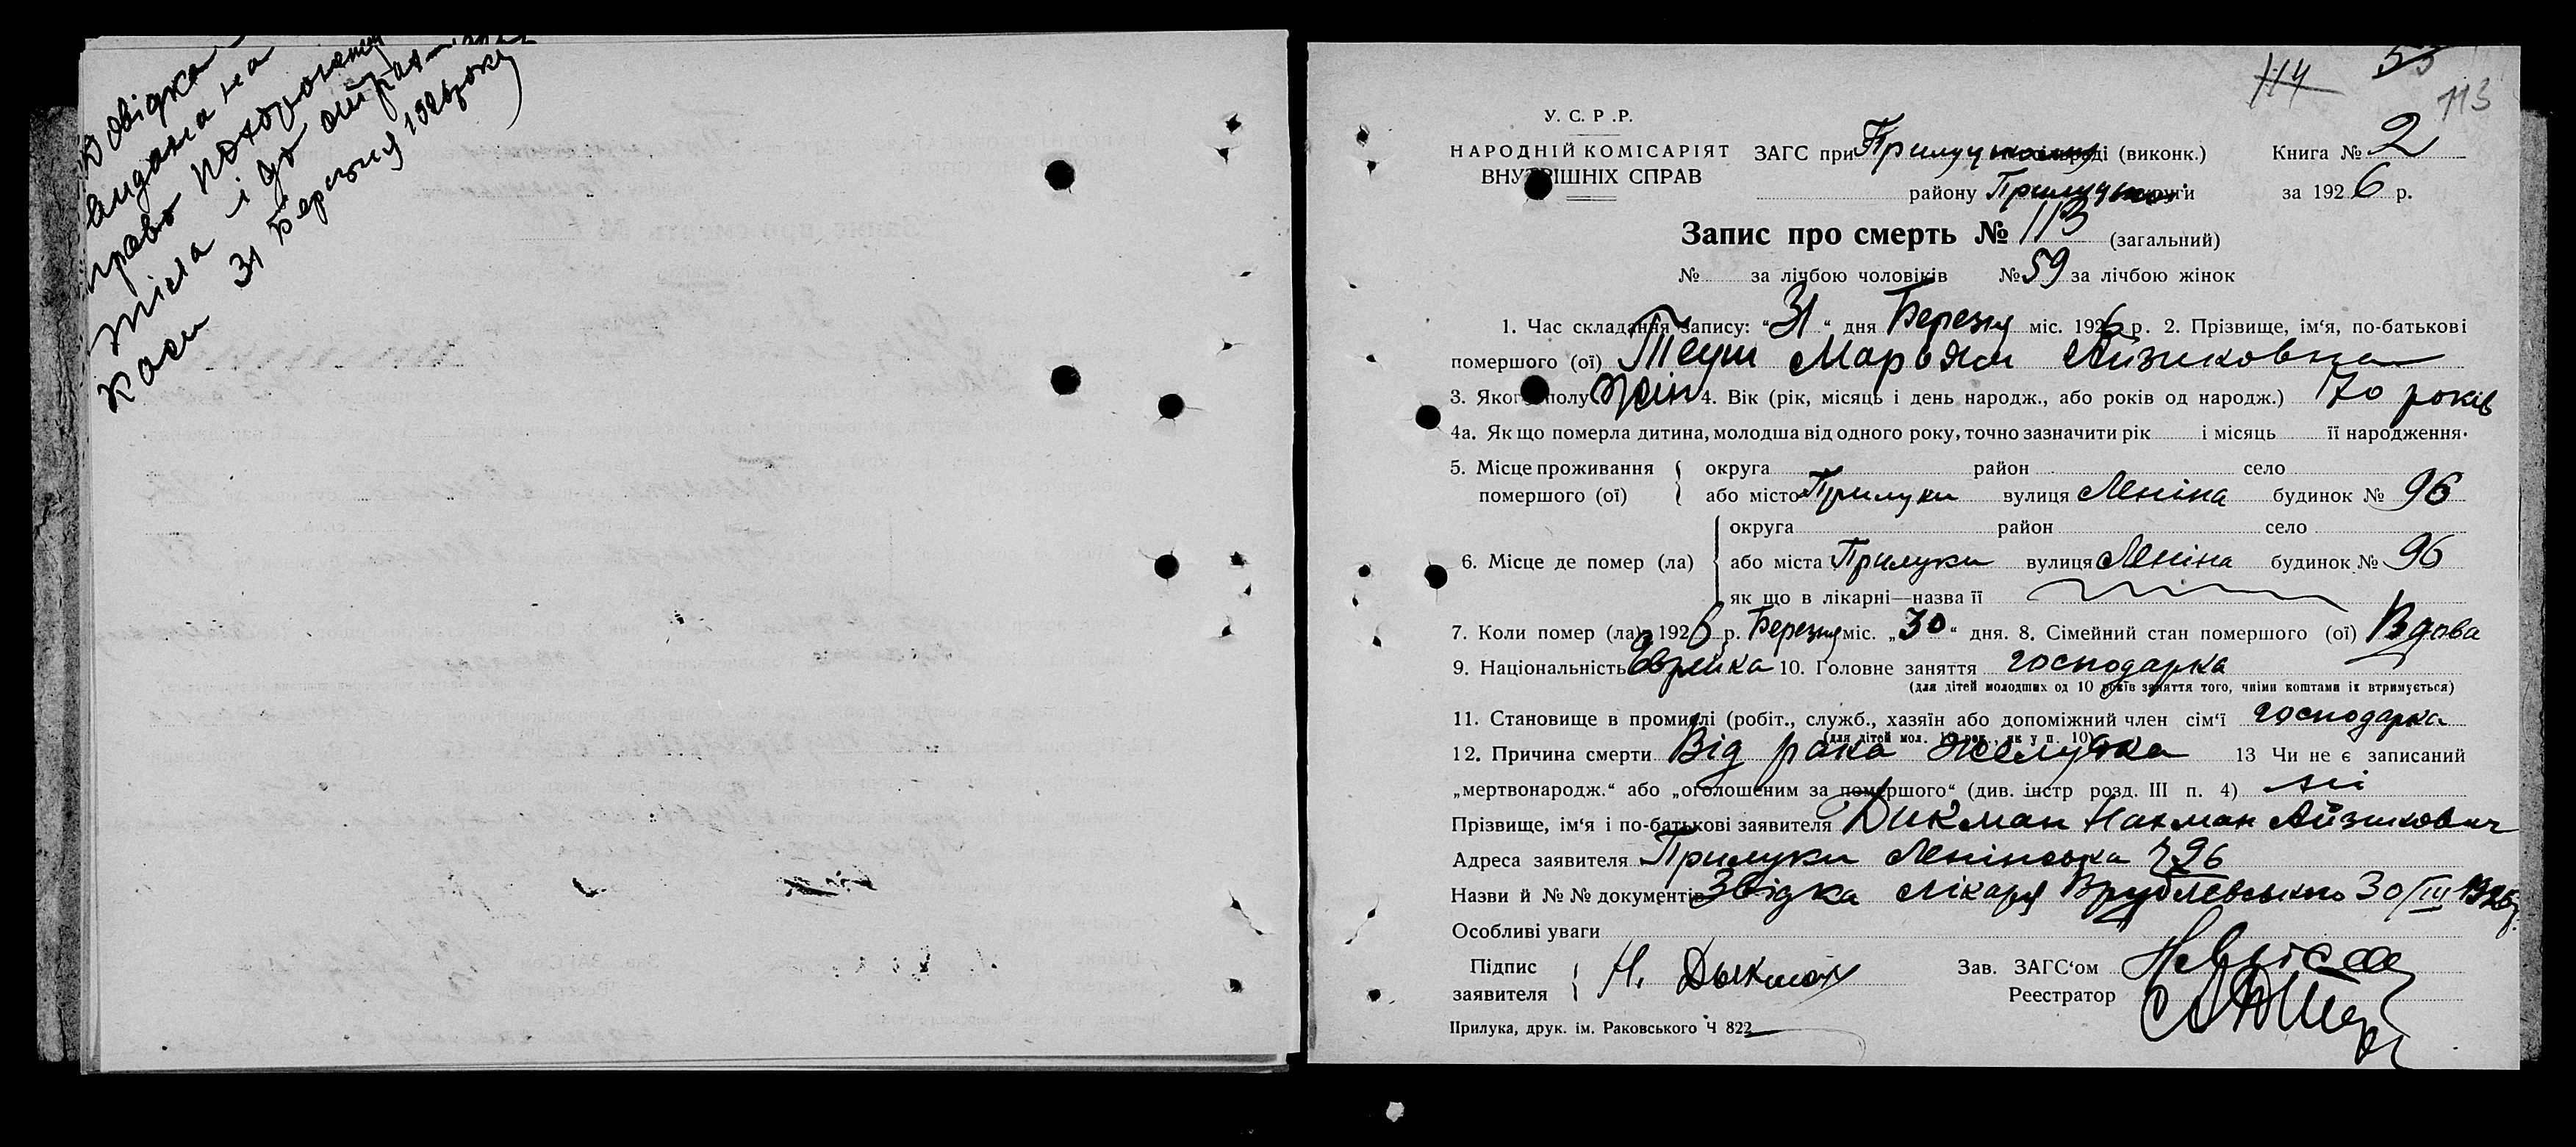 Довідка
видана на
право похорону
тіла і до страх
каси 31 Березня 1926 року
114
113
У. С. Р. Р.
НАРОДНІЙ КОМІСАРІЯТ
ВНУТРІШНІХ СПРАВ
ЗАГС при Прилуцькому (виконк.)
Книга № 2
району Прилуцької
за 1926 р.
Запис про смерть № 113 (загальний)
№ за лічбою чоловіків № 59 за лічбою жінок
1. Час складання запису: "31" дня Березня міс. 1926 р. 2. Прізвище, ім'я, по-батькові
помершого (ої) Теуш Марьям Айзиковна
3. Якого полу жін 4. Вік (рік, місяць і день народж., або років од народж.) 70 років
4а. Як що померла дитина, молодша від одного року, точно зазначити рік і місяць її народження.
5. Місце проживання округа район село
помершого (ої) або місто Прилуки вулиця Леніна будинок № 96
округа район село
6. Місце де помер (ла) або міста Прилуки вулиця Леніна будинок № 96
як що в лікарні—назва її
7. Коли помер (ла) 1926 р. Березня міс. „30" дня. 8. Сімейний стан помершого (ої) Вдова
9. Національність Єврейка 10. Головне заняття господарка
(для дітей молодших од 10 років заняття того, чиїми коштами їх втримується)
11. Становище в промислі (робіт., служб., хазяїн або допоміжний член сім'ї господарка
(для дітей мол. 10 рок., як у п. 10)
12. Причина смерти Від рака желудка 13 Чи не є записаний
„мертвонародж." або „оголошеним за помершого" (див. інстр розд. III п. 4) ні
Прізвище, ім'я і по-батькові заявителя Дикман Нахман Айзикович
Адреса заявителя Прилуки Ленінська 96
Назви й №№ документів Звідка лікаря Врублевського 30/III 1926 р.
Особливі уваги
Підпис
заявителя Н. Дыкман
Зав. ЗАГС'ом
Реестратор
Прилука, друк. ім. Раковського Ч 822